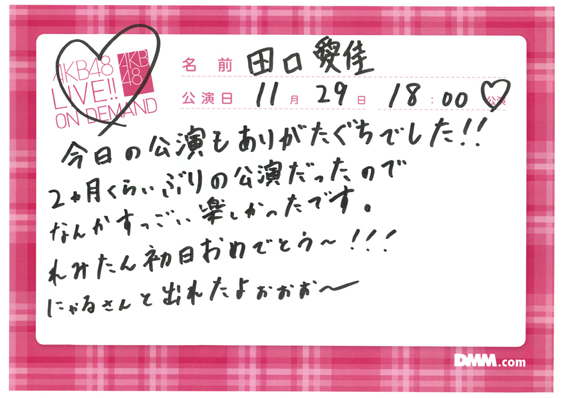 AKB48
LIVE!!
ON DEMAND
AKB
48
名前 田口愛佳
公演日 11月29日 18:00公演
今日の公演もありがたぐちでした!!
2ヵ月くらいぶりの公演だったので
なんかすっごい楽しかったです。
れみたん初日おめでとう〜!!!
にゃるさんと出れたよぉぉぉ〜
DMM.com